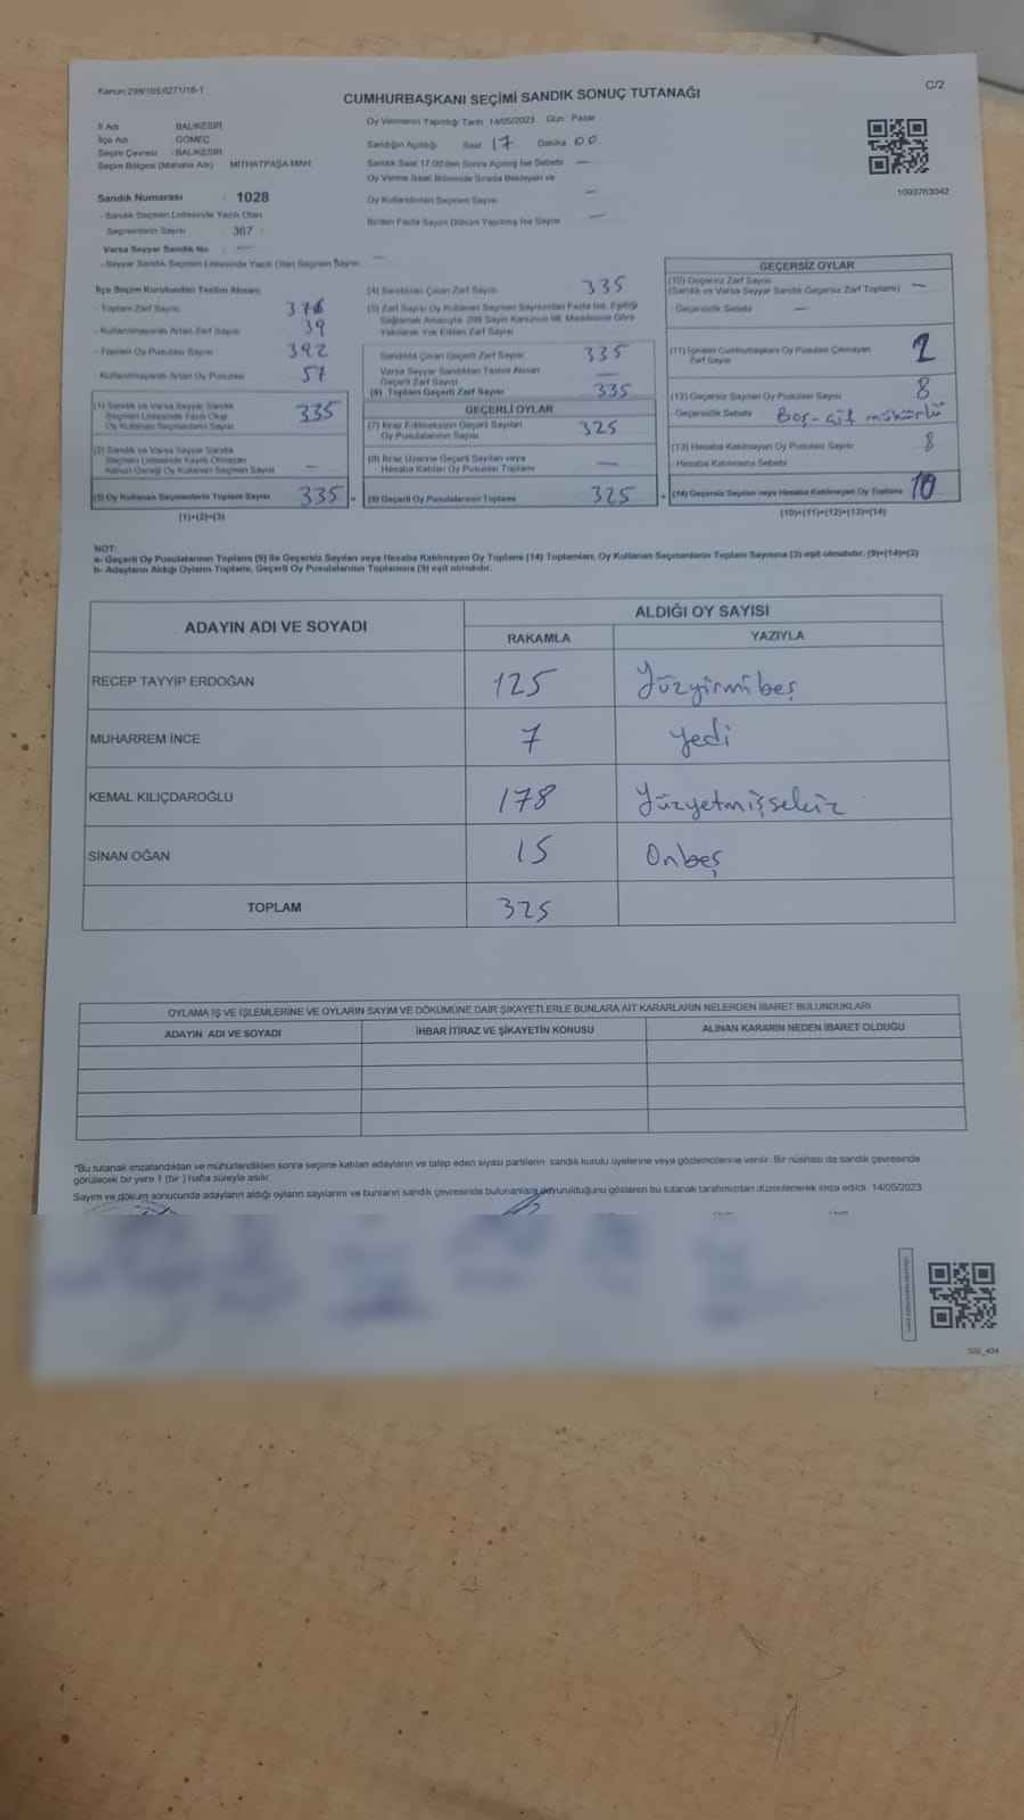 Kanun:298/105,6271/16-1
C/2
CUMHURBAŞKANI SEÇİMİ SANDIK SONUÇ TUTANAĞI
İl Adı BALIKESİR
İlçe Adı GÖMEÇ
Seçim Çevresi BALIKESİR
Seçim Bölgesi (Mahalle Adı) MİTHATPAŞA MAH.
Sandık Numarası : 1028
- Sandık Seçmen Listesinde Yazılı Olan
Seçmenlerin Sayısı : 367
Varsa Seyyar Sandık No : —
- Seyyar Sandık Seçmen Listesinde Yazılı Olan Seçmen Sayısı —
Oy Vermenin Yapıldığı Tarih 14/05/2023 Gün: Pazar
Sandığın Açıldığı Saat 17 Dakika 00
Sandık Saat 17.00'den Sonra Açılmış İse Sebebi —
Oy Verme Saati Bitiminde Sırada Bekleyen ve
Oy Kullandırılan Seçmen Sayısı —
Birden Fazla Sayım Döküm Yapılmış İse Sayısı —
1003763042
İlçe Seçim Kurulundan Teslim Alınan
- Toplam Zarf Sayısı 376
- Kullanılmayarak Artan Zarf Sayısı 39
- Toplam Oy Pusulası Sayısı 392
Kullanılmayarak Artan Oy Pusulası 57
(1) Sandık ve Varsa Seyyar Sandık
Seçmen Listesinde Yazılı Olup
Oy Kullanan Seçmenlerin Sayısı 335
(2) Sandık ve Varsa Seyyar Sandık
Seçmen Listesinde Kayıtlı Olmayan
Kanun Gereği Oy Kullanan Seçmen Sayısı —
(3) Oy Kullanan Seçmenlerin Toplam Sayısı 335
(1)+(2)=(3)
(4) Sandıktan Çıkan Zarf Sayısı 335
(5) Zarf Sayısı Oy Kullanan Seçmen Sayısından Fazla İse, Eşitliği
Sağlamak Amacıyla 298 Sayılı Kanunun 98. Maddesine Göre
Yakılarak Yok Edilen Zarf Sayısı
Sandıkta Çıkan Geçerli Zarf Sayısı 335
Varsa Seyyar Sandıktan Teslim Alınan
Geçerli Zarf Sayısı —
(6) Toplam Geçerli Zarf Sayısı 335
GEÇERLİ OYLAR
(7) İtiraz Edilmeksizin Geçerli Sayılan
Oy Pusulalarının Sayısı 325
(8) İtiraz Üzerine Geçerli Sayılan veya
Hesaba Katılan Oy Pusulası Toplamı —
(9) Geçerli Oy Pusulalarının Toplamı 325
GEÇERSİZ OYLAR
(10) Geçersiz Zarf Sayısı
(Sandık ve Varsa Seyyar Sandık Geçersiz Zarf Toplamı) —
Geçersizlik Sebebi —
(11) İçinden Cumhurbaşkanı Oy Pusulası Çıkmayan
Zarf Sayısı 2
(12) Geçersiz Sayılan Oy Pusulası Sayısı 8
- Geçersizlik Sebebi Boş-çift mühürlü
(13) Hesaba Katılmayan Oy Pusulası Sayısı 8
- Hesaba Katılmama Sebebi
(14) Geçersiz Sayılan veya Hesaba Katılmayan Oy Toplamı 10
(10)+(11)+(12)+(13)=(14)
NOT:
a- Geçerli Oy Pusulalarının Toplamı (9) ile Geçersiz Sayılan veya Hesaba Katılmayan Oy Toplamı (14) Toplamları, Oy Kullanan Seçmenlerin Toplam Sayısına (3) eşit olmalıdır. (9)+(14)=(3)
b- Adayların Aldığı Oyların Toplamı, Geçerli Oy Pusulalarının Toplamına (9) eşit olmalıdır.
ADAYIN ADI VE SOYADI
ALDIĞI OY SAYISI
RAKAMLA YAZIYLA
RECEP TAYYİP ERDOĞAN 125 Yüzyirmibeş
MUHARREM İNCE 7 Yedi
KEMAL KILIÇDAROĞLU 178 Yüzyetmişsekiz
SİNAN OĞAN 15 Onbeş
TOPLAM 325
OYLAMA İŞ VE İŞLEMLERİNE VE OYLARIN SAYIM VE DÖKÜMÜNE DAİR ŞİKAYETLERLE BUNLARA AİT KARARLARIN NELERDEN İBARET BULUNDUKLARI
ADAYIN ADI VE SOYADI İHBAR İTİRAZ VE ŞİKAYETİN KONUSU ALINAN KARARIN NEDEN İBARET OLDUĞU
*Bu tutanak imzalandıktan ve mühürlendikten sonra seçime katılan adayların ve talep eden siyasi partilerin sandık kurulu üyelerine veya gözlemcilerine verilir. Bir nüshası da sandık çevresinde
görülecek bir yere 1 (bir ) hafta süreyle asılır.
Sayım ve döküm sonucunda adayların aldığı oyların sayılarını ve bunların sandık çevresinde bulunanlara duyurulduğunu gösteren bu tutanak tarafımızdan düzenlenerek imza edildi. 14/05/2023